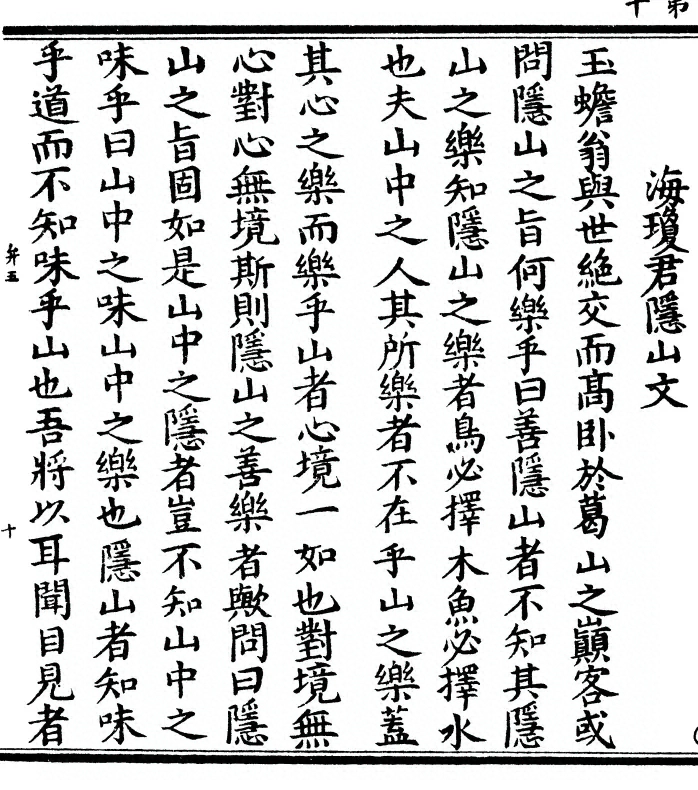 第十
海瓊君隱山文
玉蟾翁與世絶交而髙卧於葛山之巔客或
問隱山之旨何樂乎曰善隱山者不知其隱
山之樂知隱山之樂者鳥必擇木魚必擇水
也夫山中之人其所樂者不在乎山之樂蓋
其心之樂而樂乎山者心境一如也對境無
心對心無境斯則隱山之善樂者歟問曰隱
山之旨固如是山中之隱者豈不知山中之
味乎曰山中之味山中之樂也隱山者知味
乎道而不知味乎山也吾將以耳聞目見者
弁五
十